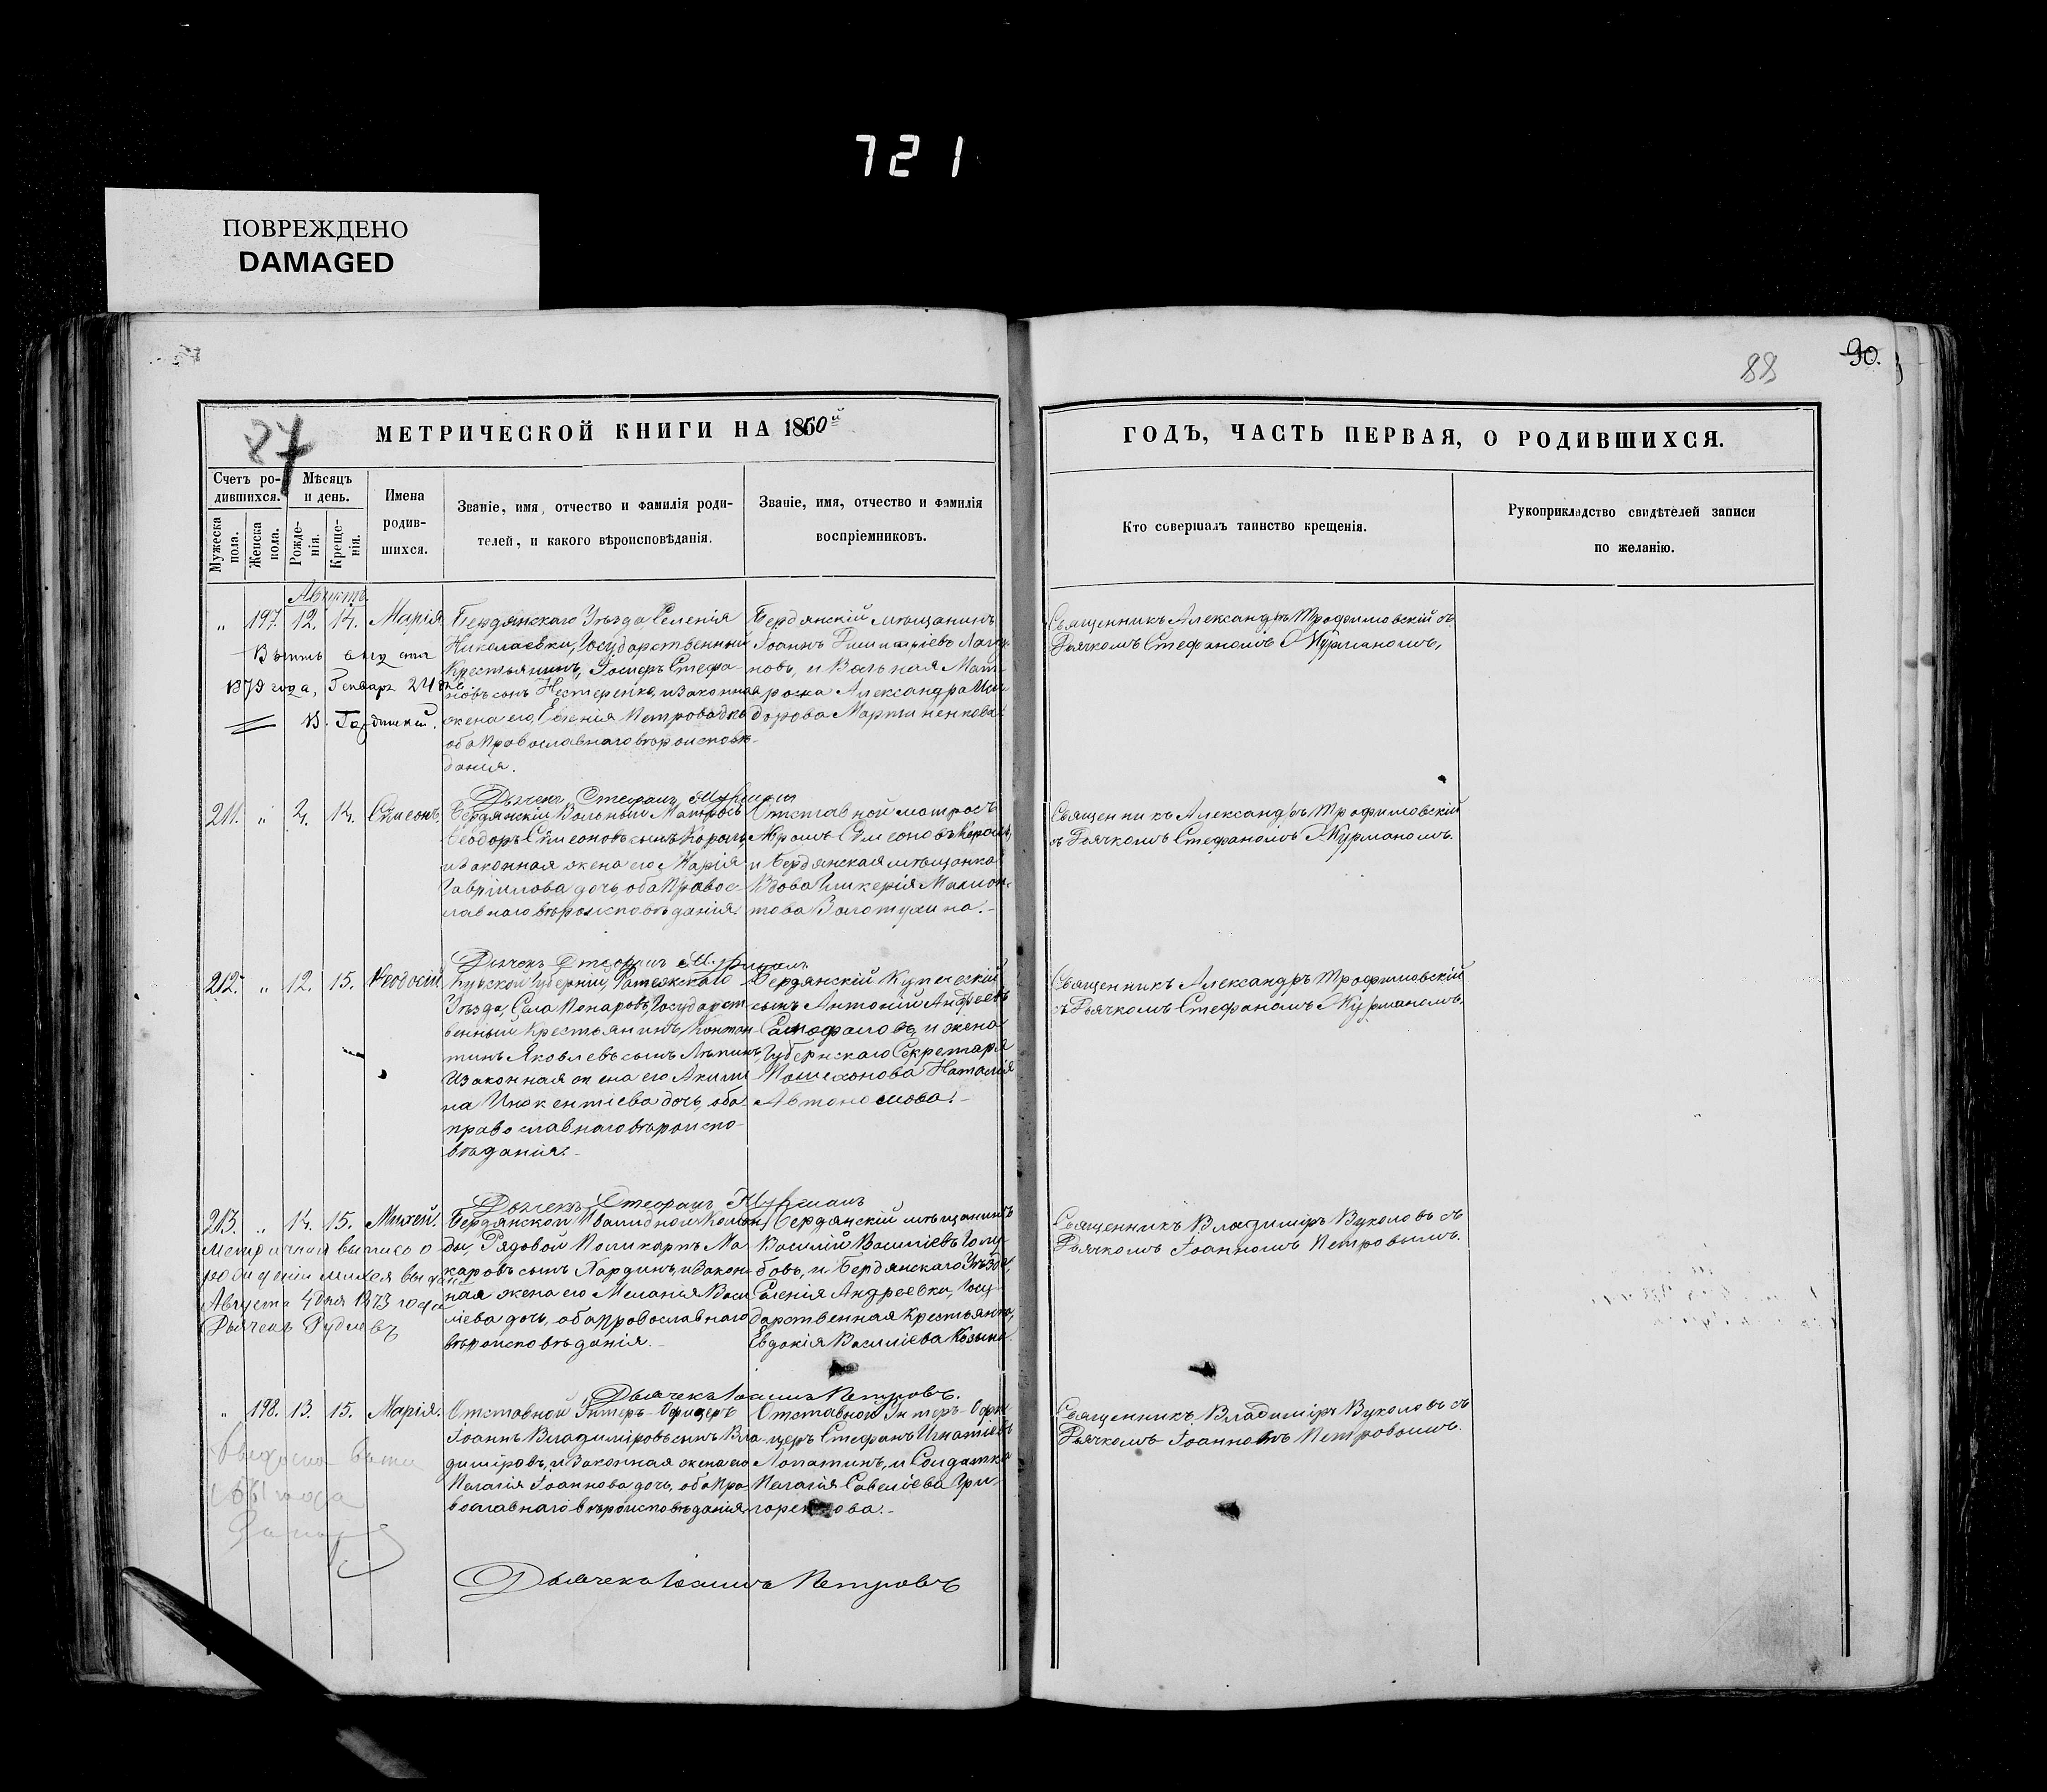 721
ПОВРЕЖДЕНО
DAMAGED
88
90.
87
МЕТРИЧЕСКОЙ КНИГИ НА 1860й
ГОДЪ, ЧАСТЬ ПЕРВАЯ, О РОДИВШИХСЯ.
Счетъ родившихся.
Мужеска пола.
Женска пола.
Мѣсяцъ и день.
Рожденія.
Крещенія.
Имена родившихся.
Званіе, имя, отчество и фамилія роди-
телей, и какого вѣроисповѣданія.
Званіе, имя, отчество и фамилія
воспріемниковъ.
Кто совершалъ таинство крещенія.
Рукоприкладство свидѣтелей записи
по желанію.
Августъ
„ 197. 12. 14. Марія
1879 года, Генваря 24 дня
Бердянскаго Уѣзда Селенія
Николаевки, Государственный
Крестьянинъ, Іосифъ Стефа-
новъ сынъ Нестеренко, и Законная
жена его, Евгенія Петрова дочь
оба Православнаго вѣроисповѣ-
данія.
Бердянскій мѣщанинъ
Іоаннъ
новъ, и Вольная Мат-
роска Александра Иси-
дорова Мартиненкова.
Священникъ Александръ Трофимовскій съ
Дьячкомъ Стефаномъ Мурманомъ,
Дьячекъ Стефанъ Мурманъ
211. „ 2. 14. Сѵмеонъ.
Бердянскій Вольный Матросъ
Ѳеодоръ Сѵмеоновъ сынъ Король
и Законная жена его Марія
Гавріилова дочь, оба Правос-
лавнаго вѣроисповѣданія.
Отставной матросъ
Сѵмеоновъ Король,
и Бердянская мѣщанка
Вдова Гликерія
Золотухина.
Священникъ Александръ Трофимовскій
съ Дьячкомъ Стефаномъ Мурманомъ.
Дьячекъ Стефанъ Мурманъ
212. „ 12. 15. Ѳеодосій
Курской Губерніи, Фатежскаго
Уѣзда, Села Понаровъ, Государст-
венный Крестьянинъ, Констан-
тинъ Яковлевъ сынъ
и Законная жена его Акили-
на Инокентіева дочь, оба
православнаго вѣроиспо-
вѣданія.
Бердянскій Купеческій
сынъ Антоній Андреевъ
и жена
Губернскаго Секретаря
Пошехонова Наталія
Автономова.
Священникъ Александръ Трофимовскій
съ Дьячкомъ Стефаномъ Мурманомъ.
Дьячекъ Стефанъ Мурманъ
213. „ 14. 15. Михей.
Метричная выпись о
рожденіи Михея выдана
Августа 4 дня 1873 года
Дьячекъ
Бердянской Инвалидной Коман-
ды, Рядовой Поликарпъ Ма-
каровъ сынъ Лардинъ, и Закон-
ная жена его Меланія Васи-
лієва дочь, оба православнаго
вѣроисповѣданія.
Бердянскій мѣщанинъ
Василій Василіевъ Голу-
бовъ, и Бердянскаго Уѣзда,
Селенія Андреевки, Госу-
дарственная Крестьянка,
Евдокія Василіева
Священникъ Владиміръ Вуколовъ съ
Дьячкомъ Іоанномъ Петровымъ.
Дьячекъ Іоаннъ Петровъ.
„ 198. 13. 15. Марія.
Отставной Унтеръ-Офицеръ
Іоаннъ Владиміровъ сынъ Вла-
диміровъ, и Законная жена его
Пелагія Іоаннова дочь, оба Пра-
вославнаго вѣроисповѣданія
Отставной Унтеръ-Офи-
церъ Стефанъ Игнатіевъ
Лопатинъ, и Солдатка
Пелагія Савеліева Гри-
горенкова.
Священникъ Владиміръ Вуколовъ съ
Дьячкомъ Іоанномъ Петровымъ.
Дьячекъ Іоаннъ Петровъ